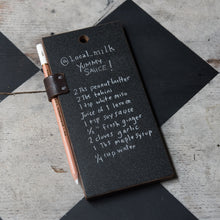 @Local_milk
YUMMY
SAUCE!
2 tbs peanut butter
2 tbs tahini
1 tsp white miso
Juice of 1 lemon
1 tsp soy sauce
1/2" fresh ginger
2 cloves garlic
1 tbs maple syrup
1/4 cup water